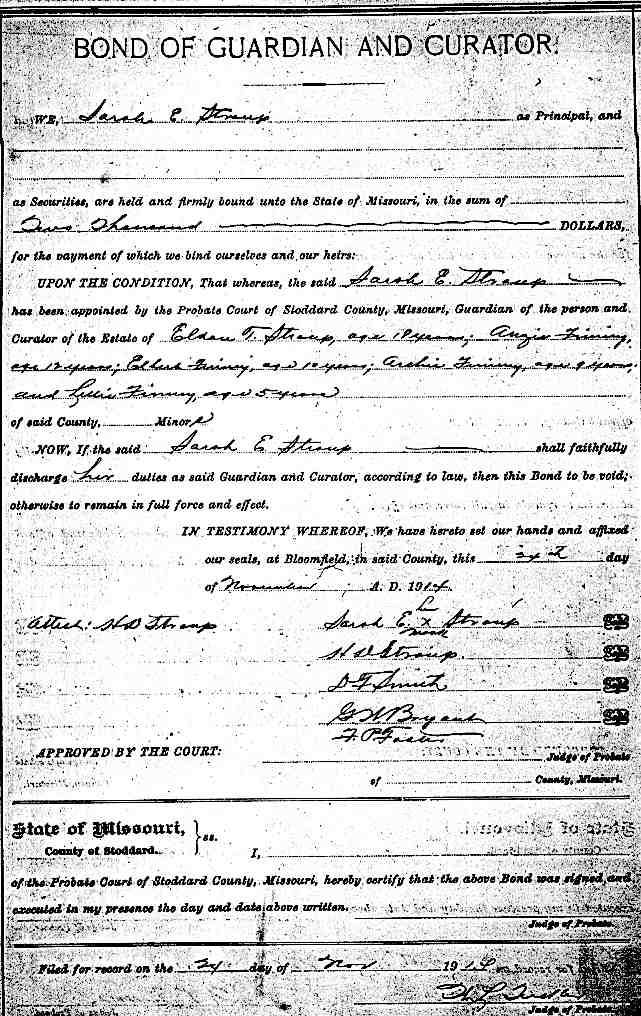 BOND OF GUARDIAN AND CURATOR.
WE, Sarah E. Stroup as Principal, and
as Securities, are held and firmly bound unto the State of Missouri, in the sum of
Two Thousand DOLLARS,
for the payment of which we bind ourselves and our heirs:
UPON THE CONDITION, That whereas, the said Sarah E. Stroup
has been appointed by the Probate Court of Stoddard County, Missouri, Guardian of the person and
Curator of the Estate of T. Stroup, age years; Finney,
age years; Elbert Finney, age 10 years; Archie Finney, age 9 years;
and Finney, age 5 years
of said County, Minors
NOW, If the said Sarah E Stroup shall faithfully
discharge her duties as said Guardian and Curator, according to law, then this Bond to be void;
otherwise to remain in full force and effect.
IN TESTIMONY WHEREOF, We have hereto set our hands and affixed
our seals, at Bloomfield, in said County, this day
of November A. D. 1914.
Attest: H D Stroup Sarah E. her x mark Stroup
H D Stroup.
D F Smith
G W Bryant
F. P. Foster
APPROVED BY THE COURT:
Judge of Probate
of County, Missouri.
State of Missouri, } ss.
County of Stoddard.
I,
of the Probate Court of Stoddard County, Missouri, hereby certify that the above Bond was signed and
executed in my presence the day and date above written.
Judge of Probate.
Filed for record on the day of Nov 1914
Judge of Probate.